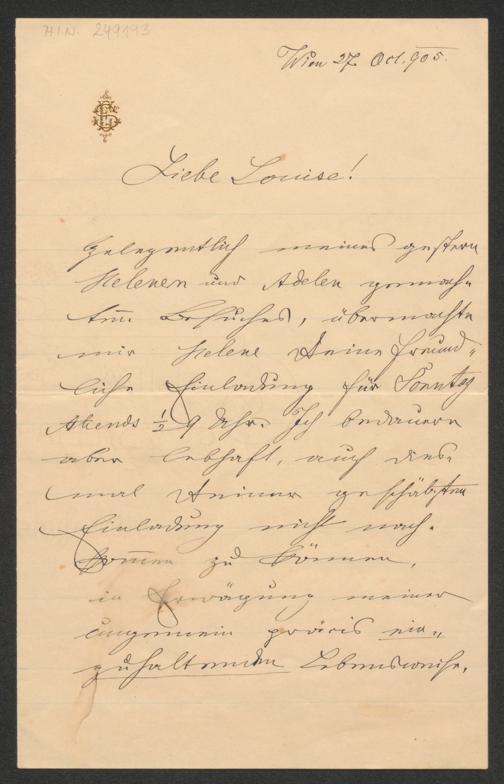 H.I.N. 249193
Wien 27 Oct. 905.
Liebe Louise!
Gelegentlich meines gestern
Helenen und Adelen gemach-
ten Besuches, übermachte
mir Helene Deine freund-
liche Einladung für Sonntag
Abends ½ 9 Uhr. Ich bedauere
aber lebhaft, auch dies-
mal Deiner geschätzten
Einladung nicht nach-
kom̅en zu können,
in Erwägung meiner
ungemein präcis ein-
zuhaltenden Lebensweise,